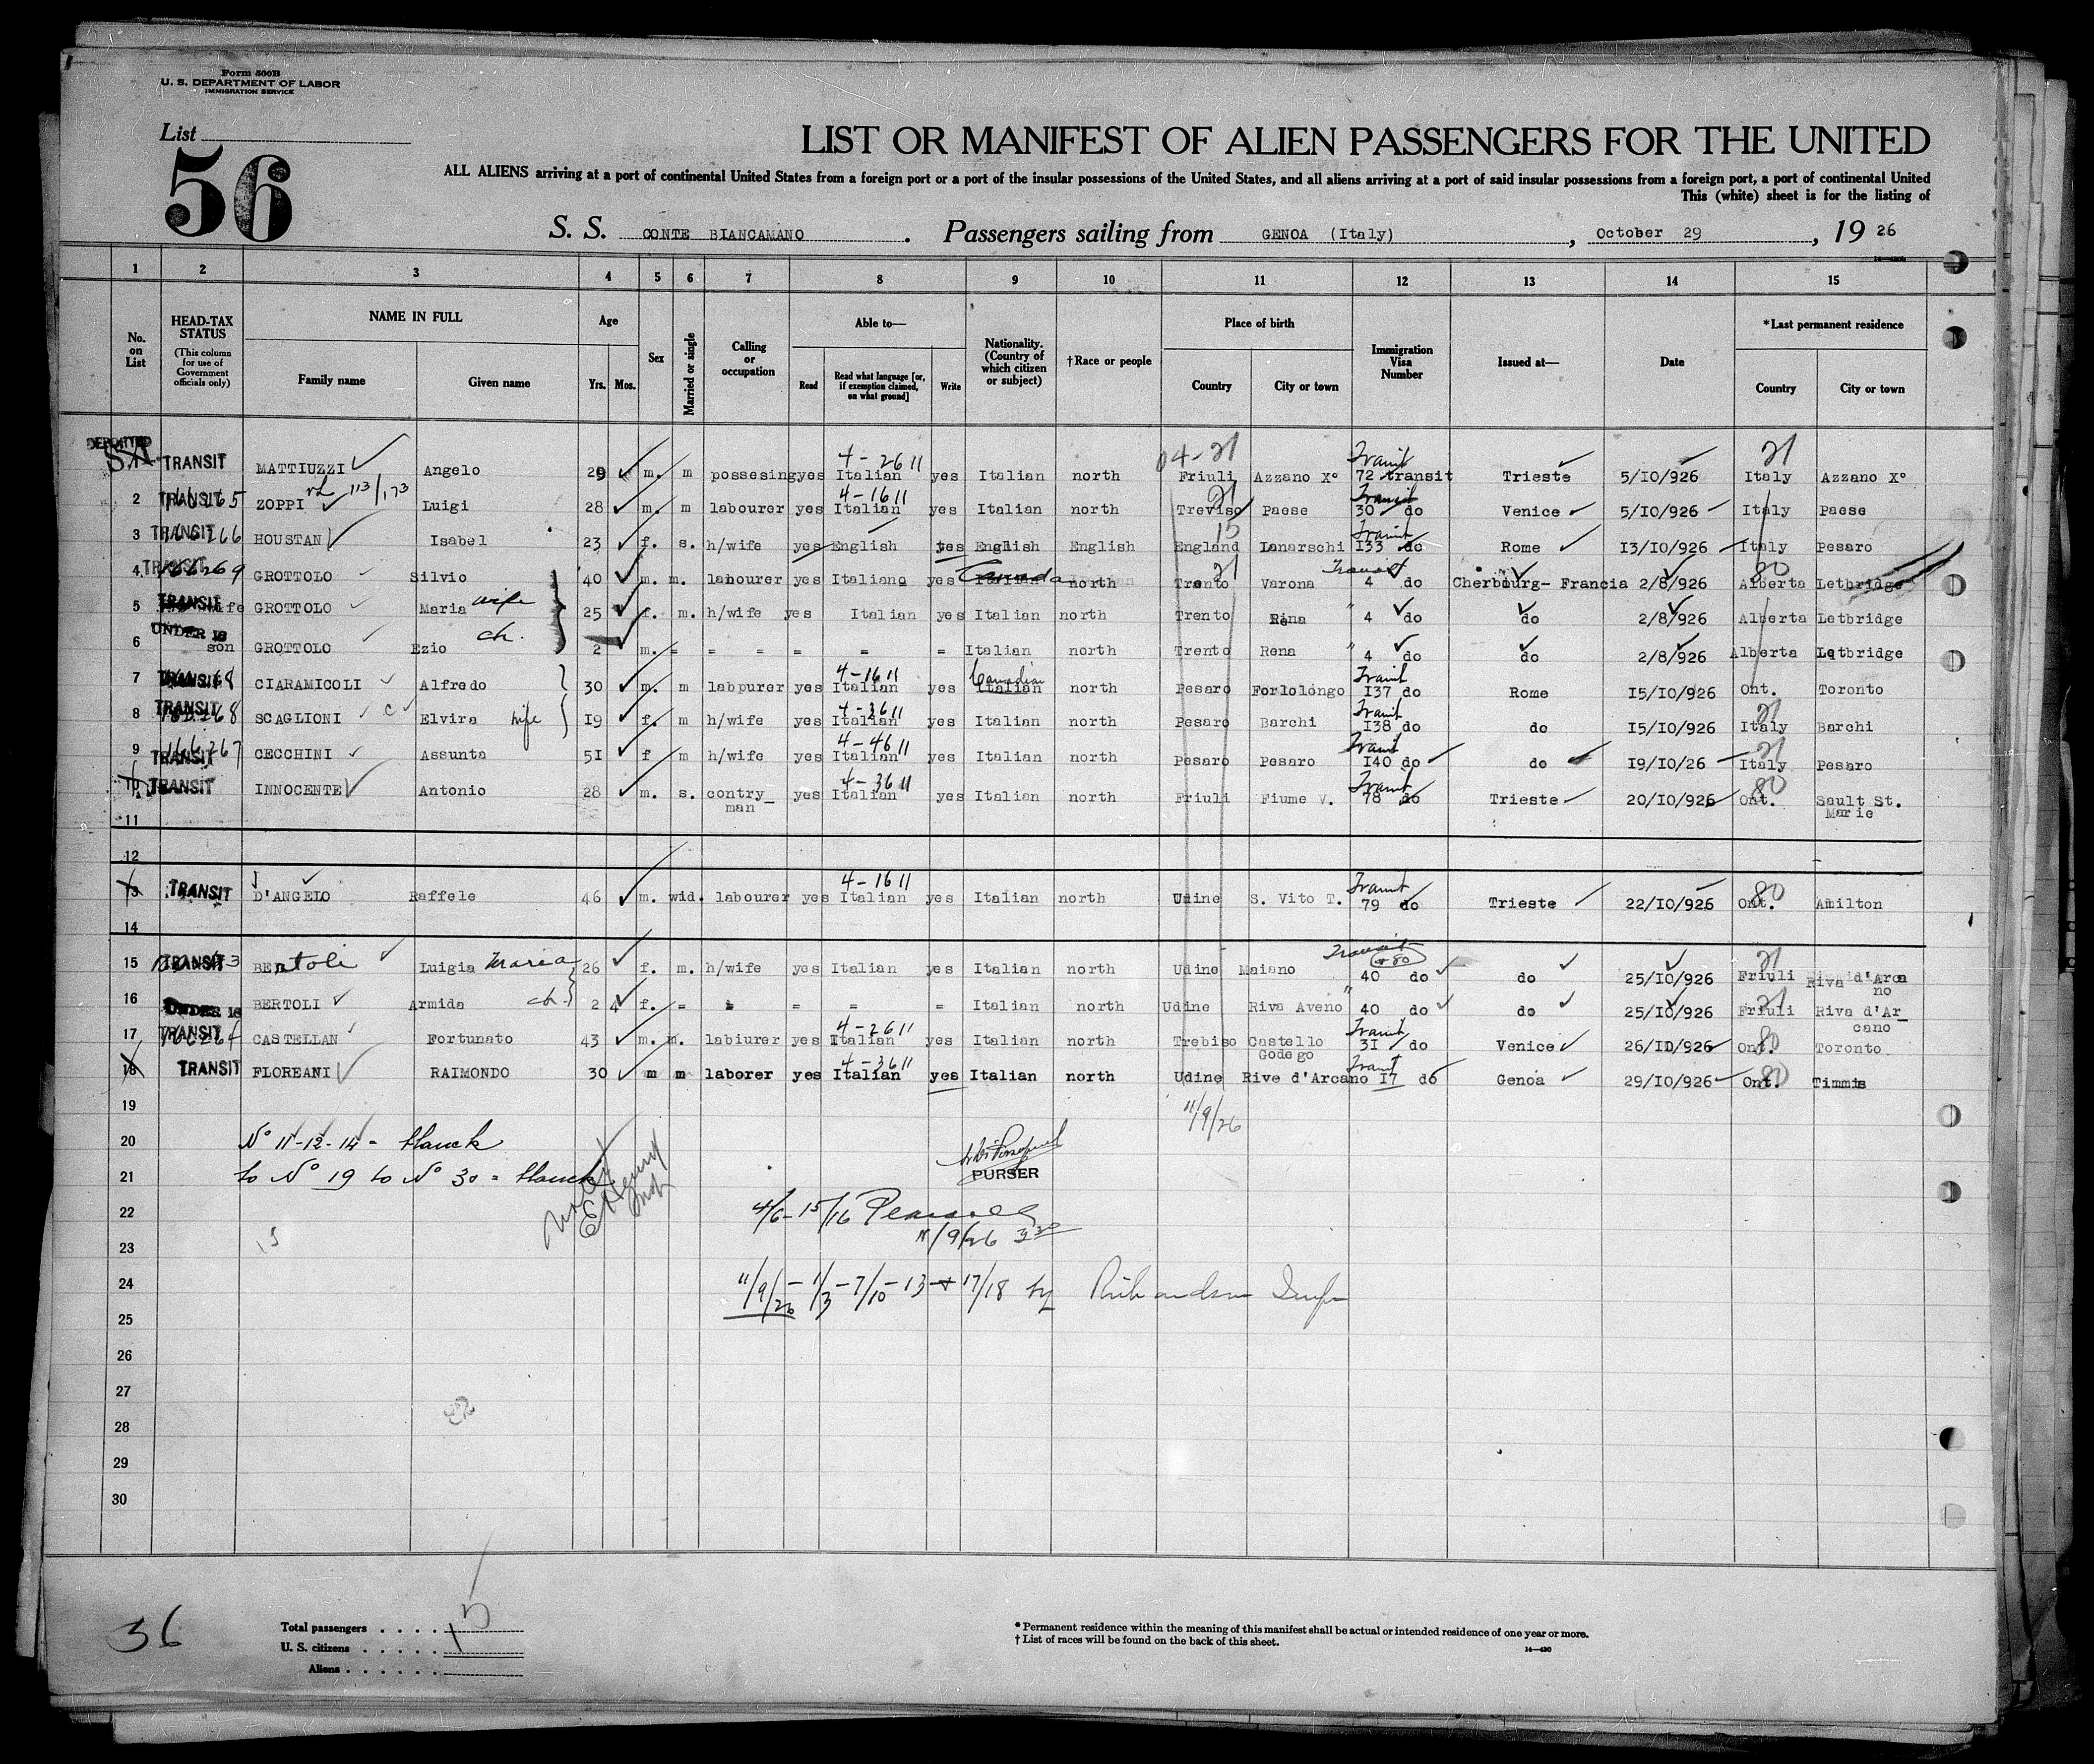 Form 500B
U. S. DEPARTMENT OF LABOR
IMMIGRATION SERVICE
List
56
LIST OR MANIFEST OF ALIEN PASSENGERS FOR THE UNITED
ALL ALIENS arriving at a port of continental United States from a foreign port or a port of the insular possessions of the United States, and all aliens arriving at a port of said insular possessions from a foreign port, a port of continental United
This (white) sheet is for the listing of
S. S. CONTE BIANCAMANO. Passengers sailing from GENOA (Italy), October 29, 19 26
1 2 3 4 5 6 7 8 9 10 11 12 13 14 15
No. on List
HEAD-TAX STATUS (This column for use of Government officials only)
NAME IN FULL Family name Given name
Age Yrs. Mos.
Sex
Married or single
Calling or occupation
Able to— Read Read what language [or, if exemption claimed, on what ground] Write
Nationality. (Country of which citizen or subject)
†Race or people
Place of birth Country City or town
Immigration Visa Number
Issued at—
Date
*Last permanent residence Country City or town
DEPORTED SA TRANSIT MATTIUZZI Angelo 29 m. m possesing yes 4-26 11 Italian yes Italian north 04-21 Friuli Azzano X° Transit 72 transit Trieste 5/IO/926 21 Italy Azzano X°
2 TRANSIT ZOPPI 113/173 Luigi 28 m. m labourer yes 4-16 11 Italian yes Italian north 21 Treviso Paese Transit 30 do Venice 5/IO/926 Italy Paese
3 TRANSIT 166266 HOUSTAN Isabel 23 f. s. h/wife yes English yes English English 15 England Lanarschi Transit I33 do Rome I3/IO/926 Italy Pesaro
4 TRANSIT 166269 GROTTOLO Silvio 40 m. m. labourer yes Italiano yes Canada north 21 Trento Varona Transit 4 do Cherbourg- Francia 2/8/926 80 Alberta Letbridge
5 TRANSIT wife GROTTOLO Maria wife 25 f. m. h/wife yes Italian yes Italian north Trento Rena " 4 do do 2/8/926 Alberta Letbridge
6 UNDER 16 son GROTTOLO Ezio ch. 2 m. = = = = = = Italian north Trento Rena " 4 do do 2/8/926 Alberta Letbridge
7 TRANSIT CIARAMICOLI Alfredo 30 m. m labpurer yes 4-16 11 Italian yes Canadian Italian north Pesaro Forlolongo Transit I37 do Rome I5/IO/926 Ont. Toronto
8 TRANSIT SCAGLIONI C Elvira wife I9 f. m h/wife yes 4-36 11 Italian yes Italian north Pesaro Barchi Transit I38 do do I5/IO/926 21 Italy Barchi
9 TRANSIT 166267 CECCHINI Assunta 5I f m h/wife yes 4-46 11 Italian yes Italian north Pesaro Pesaro Transit I40 do do I9/IO/26 21 Italy Pesaro
10 TRANSIT INNOCENTE Antonio 28 m. s. contry_ man yes 4-36 11 Italian yes Italian north Friuli Fiume V. Transit 78 do Trieste 20/IO/926 80 Ont. Sault St. Marie
11
12
13 TRANSIT D'ANGELO Raffele 46 m. wid. labourer yes 4-16 11 Italian yes Italian north Udine S. Vito T. Transit 79 do Trieste 22/IO/926 80 Ont. Amilton
14
15 TRANSIT Bertoli Luigia Maria 26 f. m. h/wife yes Italian yes Italian north Udine Maiano Transit 80 40 do do 25/IO/926 21 Friuli Riva d'Arca no
16 UNDER 16 BERTOLI Armida ch. 2 4 f. = = = = = Italian north Udine Riva Aveno " 40 do do 25/IO/926 21 Friuli Riva d'Ar_ cano
17 TRANSIT CASTELLAN Fortunato 43 m. m. labiurer yes 4-26 11 Italian yes Italian north Trebiso Castello Godego Transit 3I do Venice 26/IO/926 80 Ont. Toronto
18 TRANSIT FLOREANI RAIMONDO 30 m m laborer yes 4-36 11 Italian yes Italian north Udine Rive d'Arcano Transit I7 do Genoa 29/IO/926 80 Ont. Timmis
19 11/9/26
20 No 11-12-14= blanck
21 to No 19 to No 30 = blanck PURSER
22 4/6-15/16
23 11/9/26 3 30
24 11/9/26 - 1/3 - 7/10 - 13 + 17/18 by Richardson Insp
25
26
27
28
29
30
36
Total passengers 15
U. S. citizens
Aliens
* Permanent residence within the meaning of this manifest shall be actual or intended residence of one year or more.
† List of races will be found on the back of this sheet.